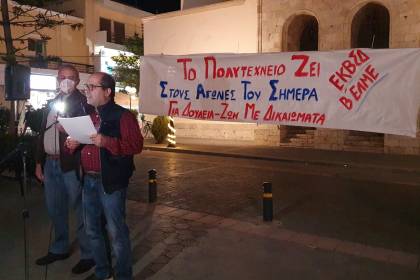 Το Πολυτεχνειο Ζει
Στους Αγωνες Του Σημερα
Για Δουλεια-Ζωη Με Δικαιωματα
ΕΚΒΣΔ
Β ΕΛΜΕ